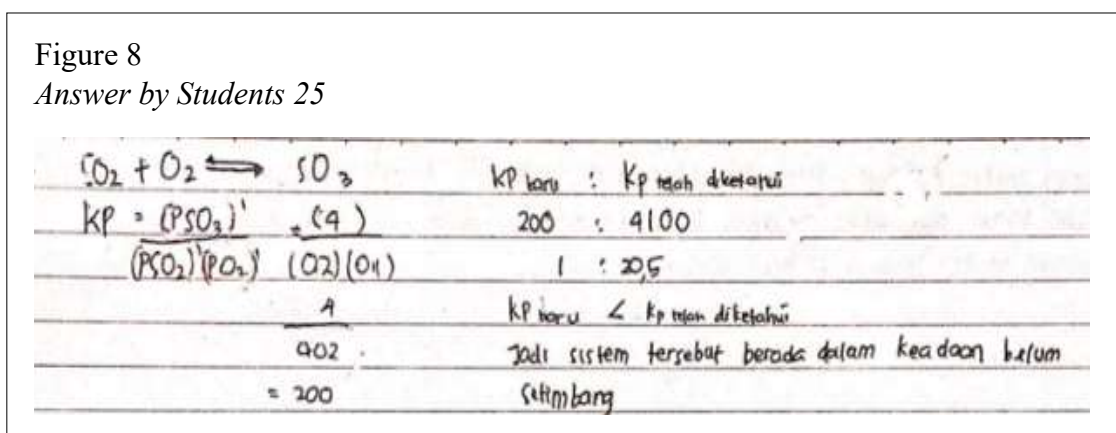 Figure 8
Answer by Students 25
SO₂ + O₂ ⇌ SO₃
KP = (PSO₃)¹ = (4)
(PSO₂)¹(PO₂)¹ (02)(01)
4
002
= 200
KP baru : Kp telah diketahui
200 : 4100
1 : 20,5
KP baru < Kp telah diketahui
Jadi sistem tersebut berada dalam keadaan belum
setimbang